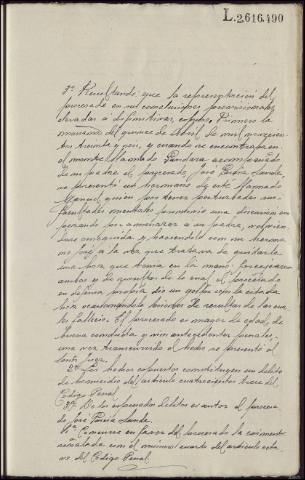 L.2.616,490
3º. Resultando, que la representacion del
procesado en sus conclusiones provisionales,
elevadas a definitivas, expuso: Primero: la
mañana del quince de Abril de mil novecien-
tos treinta y seis, y cuando se encontraba en
el monte llamado Gandara acompañado
de su padre el procesado, José
se presentó un hermano de este llamado
Manuel, quien por tener perturbadas sus
facultades mentales promovió una discusion em-
pezando por amenazar a su padre,
y haciendolo con su hermano
José a la vez que trataba de quitarle
una hoz que tenia en la mano forcejearon
ambos y
defensa propia dio un golpe
de resultas de las cua-
les falleció. El procesado es mayor de edad, de
buena conducta y sin antecedentes penales
una vez transcurrido el hecho se presentó al
Señor Juez.
2ª. Los hechos expuestos constituyen un delito
de homicidio del articulo cuatrocientos trece del
Código Penal.
3ª. De los expresados delitos es autor el procesa-
do José
4ª. Concurre en favor del procesado la eximente
señalada con el número cuarto del articulo octa-
vo del Código Penal.